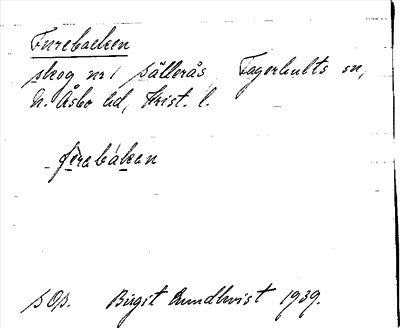 Furebacken
skog nr 1 Sällerås, Fagerhults sn,
N. Åsbo hd, Krist. l.
furabákan
SOs. Birgit Lundkvist 1939.